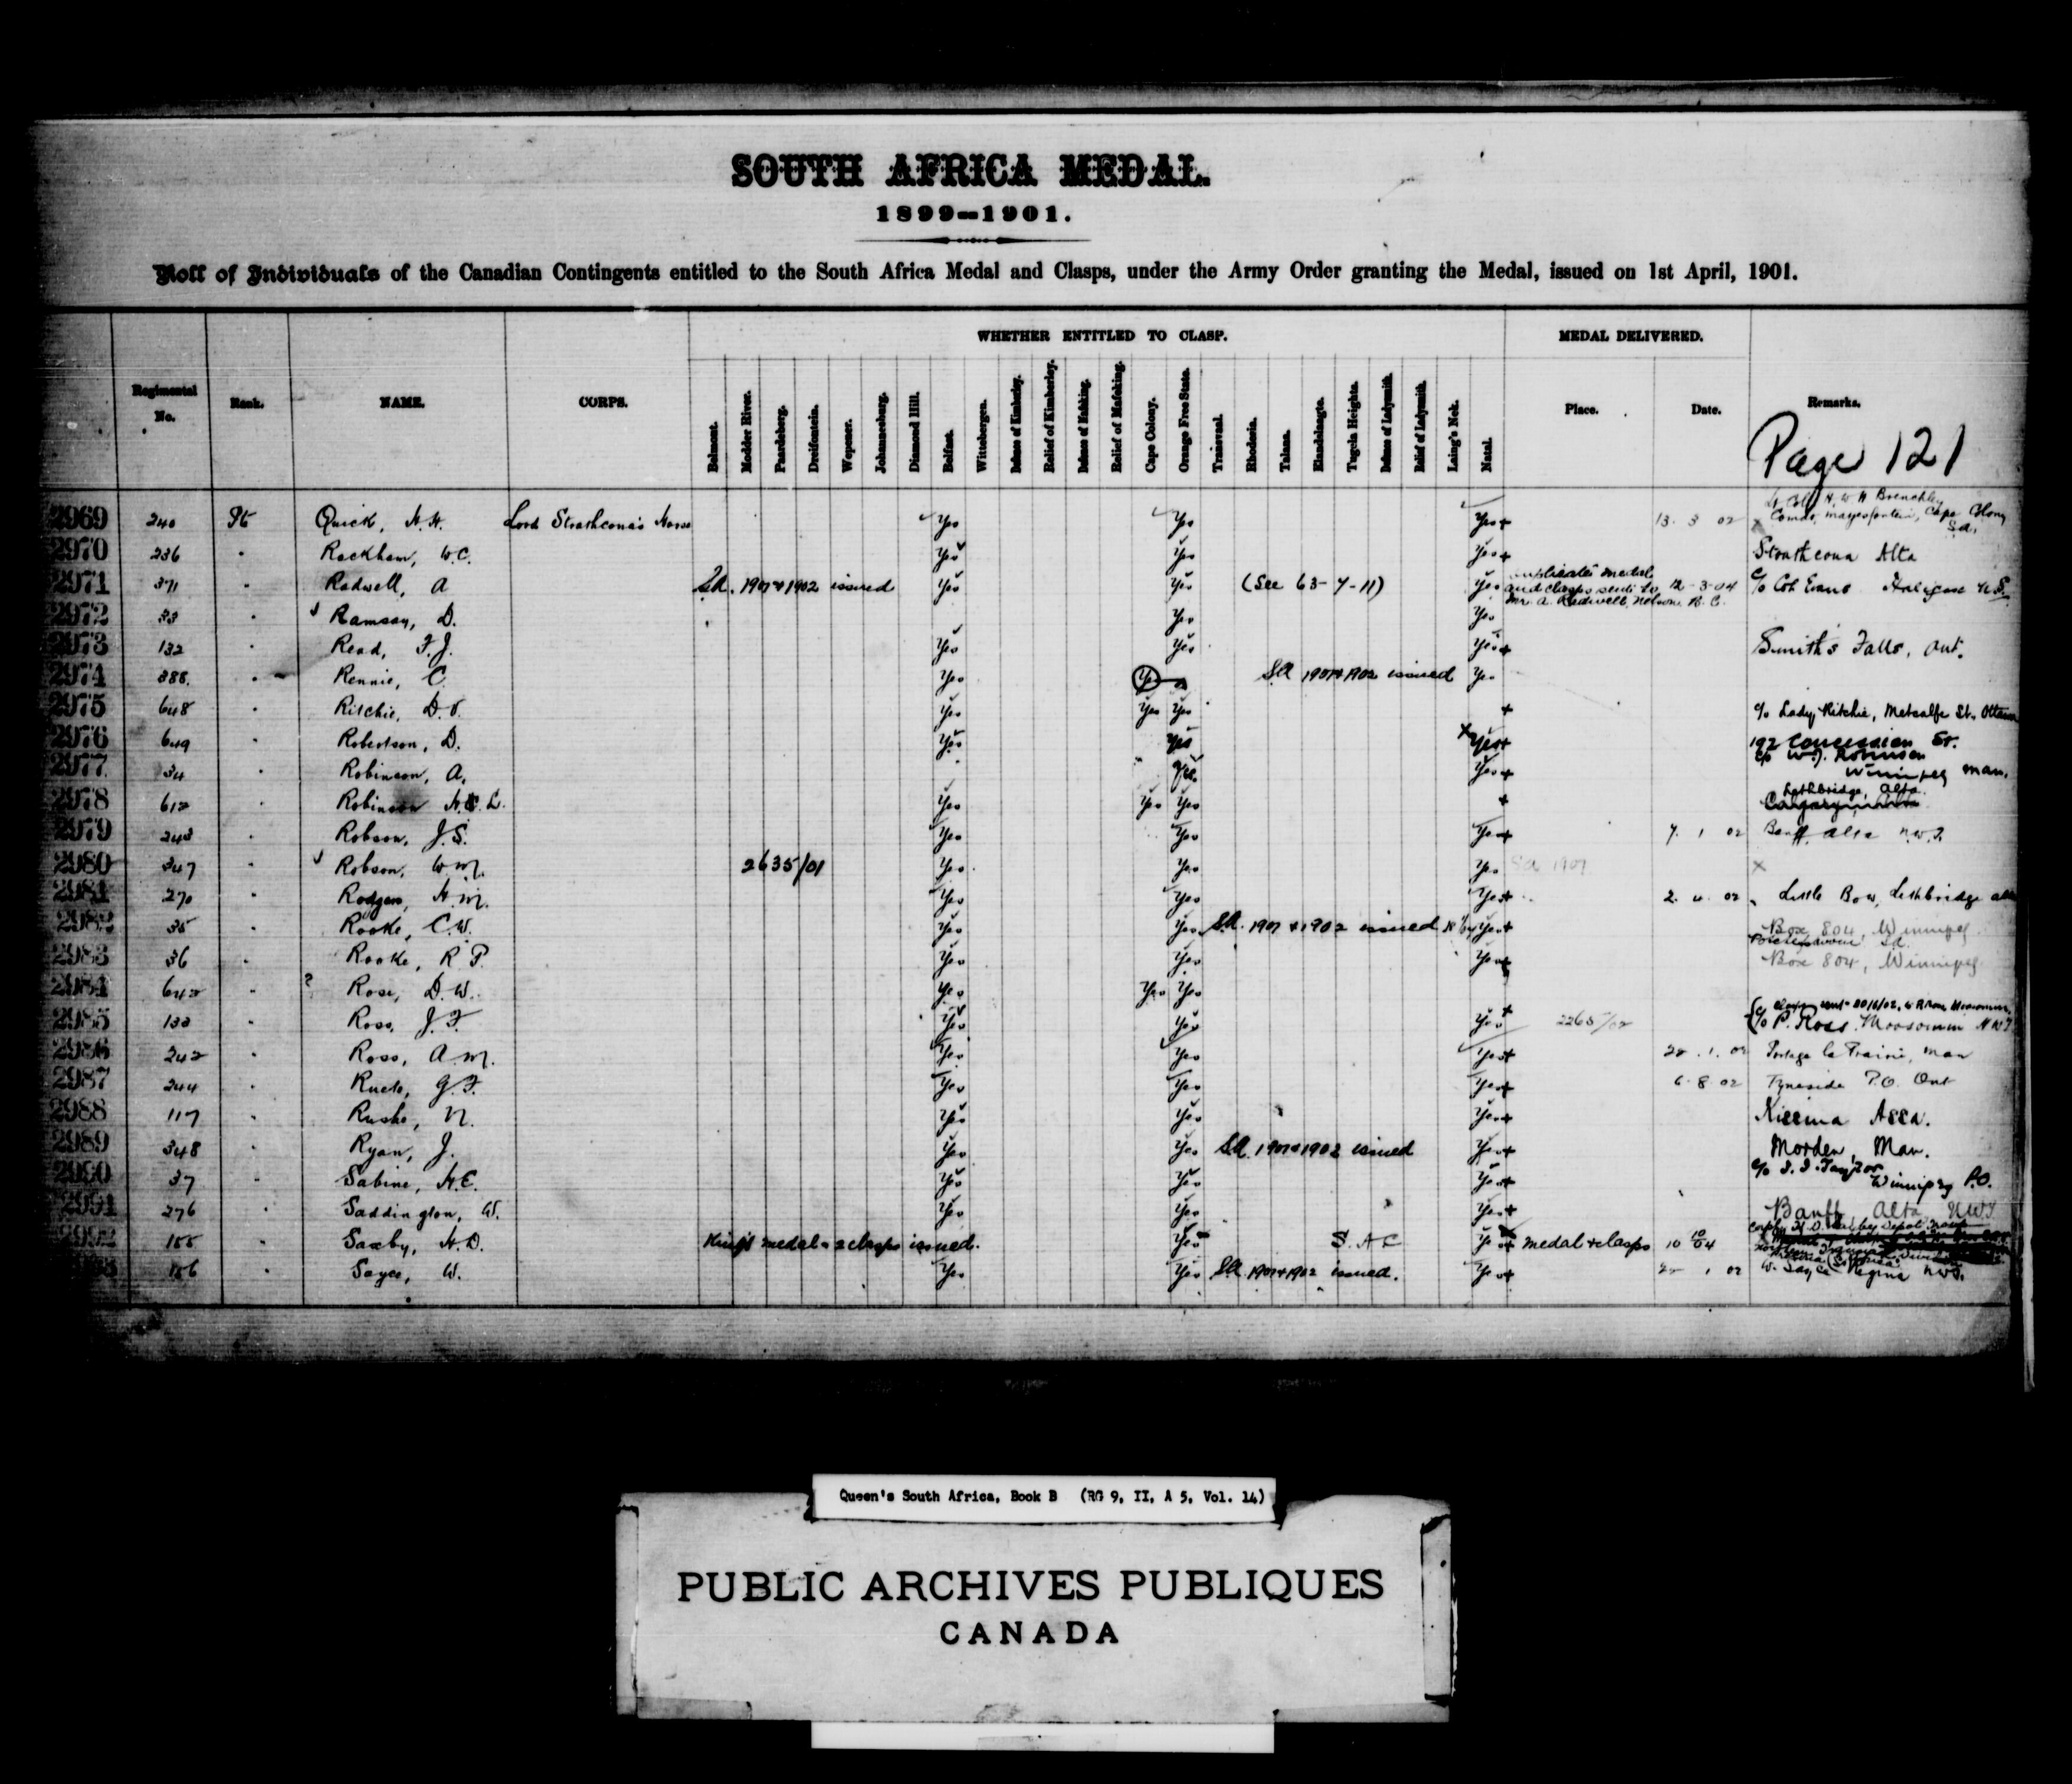 SOUTH AFRICA MEDAL.
1899-1901.
Roll of Individuals of the Canadian Contingents entitled to the South Africa Medal and Clasps, under the Army Order granting the Medal, issued on 1st April, 1901.
WHETHER ENTITLED TO CLASP. MEDAL DELIVERED.
Regimental No. Rank. NAME. CORPS. Belmont. Modder River. Paardeberg. Dreifontein. Wepener. Johannesburg. Diamond Hill. Belfast. Wittebergen. Defense of Kimberley. Relief of Kimberley. Defense of Mafeking. Relief of Mafeking. Cape Colony. Orange Free State. Transvaal. Rhodesia. Talana. Elandslaagte. Tugela Heights. Defense of Ladysmith. Relief of Ladysmith. Laing's Nek. Natal. Place. Date. Remarks.
Page 121
2969 240 Pt Quick, H.H. Lord Strathcona's Horse Yes Yes Yes+ 13 3 02 Cape Colony
2970 236 " Rackham, W.C. Yes Yes Yes+ Strathcona Alta
2971 371 Radwell, A SA. 1901 & 1902 issued Yes Yes (See 63-7-11) Yes duplicate medal and clasps sent to Mr. A. Radwell, Nelson B.C. 12-3-04 c/o Col Evans Halifax N.S.
2972 33 " Ramsay, D. Yes Yes
2973 132 " Read, F.J. Yes Yes Yes+ Smith's Falls, Ont.
2974 388. " Rennie, C. Yes Yes SA 1901 & 1902 issued Yes
2975 648 " Ritchie, D.V. Yes Yes Yes + c/o Lady Ritchie, Metcalfe St. Ottawa
2976 649 " Robertson, D. Yes Yes Yes+ 192 Concession St.
2977 34 " Robinson, A. Yes Yes+ c/o W.J. Robinson Winnipeg Man.
2978 612 " Robinson H. L. Yes Yes Yes + Lethbridge, Alta.
2979 243 " Robson, J.S. Yes Yes Yes+ 7 1 02 Banff Alta N.W.T.
2980 347 " Robson, Wm. 2635/01 Yes Yes Yes SA 1901 x
2981 270 " Rodgers, H.M. Yes Yes Yes+ 2. 4. 02 Little Bow, Lethbridge Alta
2982 35 " Rooke, C.W. Yes Yes SA. 1901 & 1902 issued Yes+ Box 804, Winnipeg
2983 36 " Rooke, R P. Yes Yes Yes+ Box 804, Winnipeg
2984 642 " ? Rose, D.W. Yes Yes Yes
2985 133 " Ross, J.F. Yes Yes Yes+ 2265/02 c/o P. Ross Moosomin NWT
2986 242 " Ross, A.M. Yes Yes Yes+ 22. 1. 02 Portage la Prairie, Man
2987 244 " Ruck, G.F. Yes Yes Yes+ 6 8 02 Tyneside P.O. Ont
2988 117 " Rushe, N. Yes Yes Yes+ Kissina Assa.
2989 348 " Ryan, J. Yes Yes SA. 1901 & 1902 issued Yes+ Morden, Man.
2990 37 " Sabine, H.E. Yes Yes Yes+ c/o Taylor Winnipeg P.O.
2991 276 " Saddington, W. Yes Yes Yes+ Banff, Alta, NWT
2992 155 " Saxby, H.D. King's medal & 2 clasps issued. Yes S.A.C Yes+ medal & clasps 10 10 04
156 " Sayce, W. Yes Yes SA 1901 & 1902 issued. Yes+ 22 1 02 W. Sayce Regina NWT.
Queen's South Africa, Book B (RG 9, II, A 5, Vol. 14)
PUBLIC ARCHIVES PUBLIQUES
CANADA